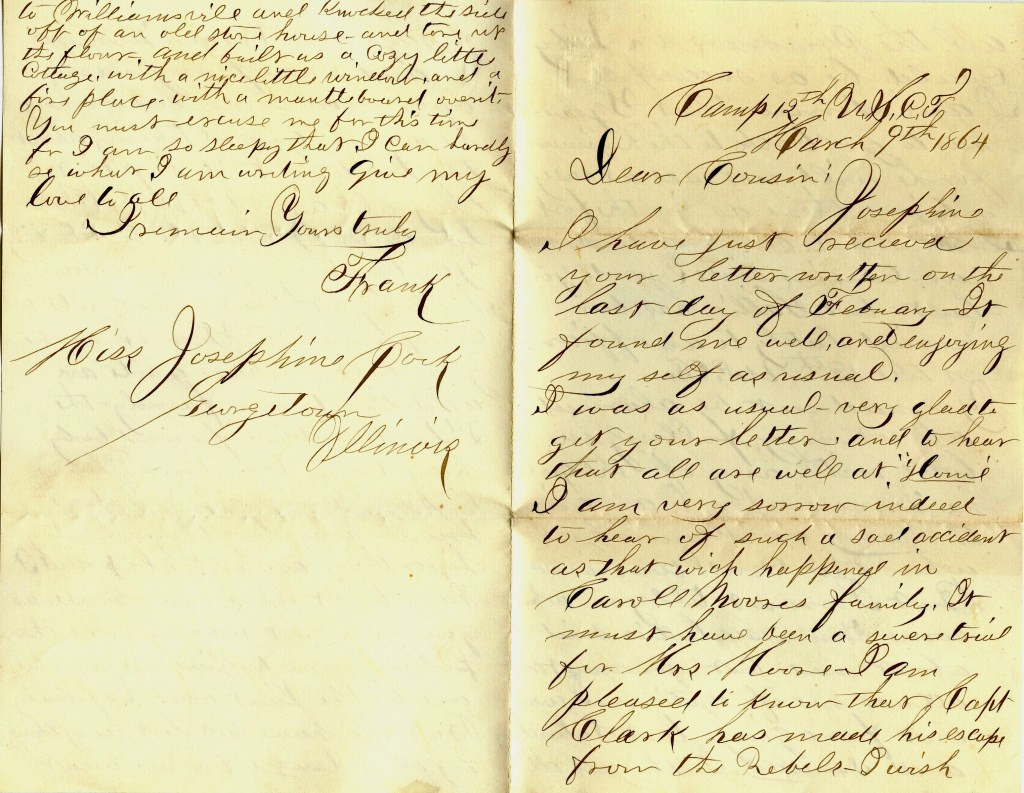 to Williamsvile and Knocked the side
off of an old store house - and tore up
the flour, and built us a Cozy little
Cottage, with a nice little window, and a
fire place - with a mantle board over it.
You must excuse me for this time
for I am so sleepy that I can hardly
se what I am writing Give my
love to all
I remain Yours truly
Frank
Miss Josephine Cock
Georgetown
Illinois
Camp 12th U.S.C.T.
March 9th 1864
Dear Cousin!
Josephine
I have just recieved
your letter written on the
last day of Febuary - It
found me well, and enjoying
my self as usual.
I was as usual - very glad to
get your letter and to hear
that all are well at "Home"
I am very sorrow indeed
to hear of such a sad accident
as that wich happened in
Caroll Moores family. It
must have been a severe trial
for Mrs Moore - I am
pleased to know that Capt
Clark has made his escape
from the Rebels - I wish